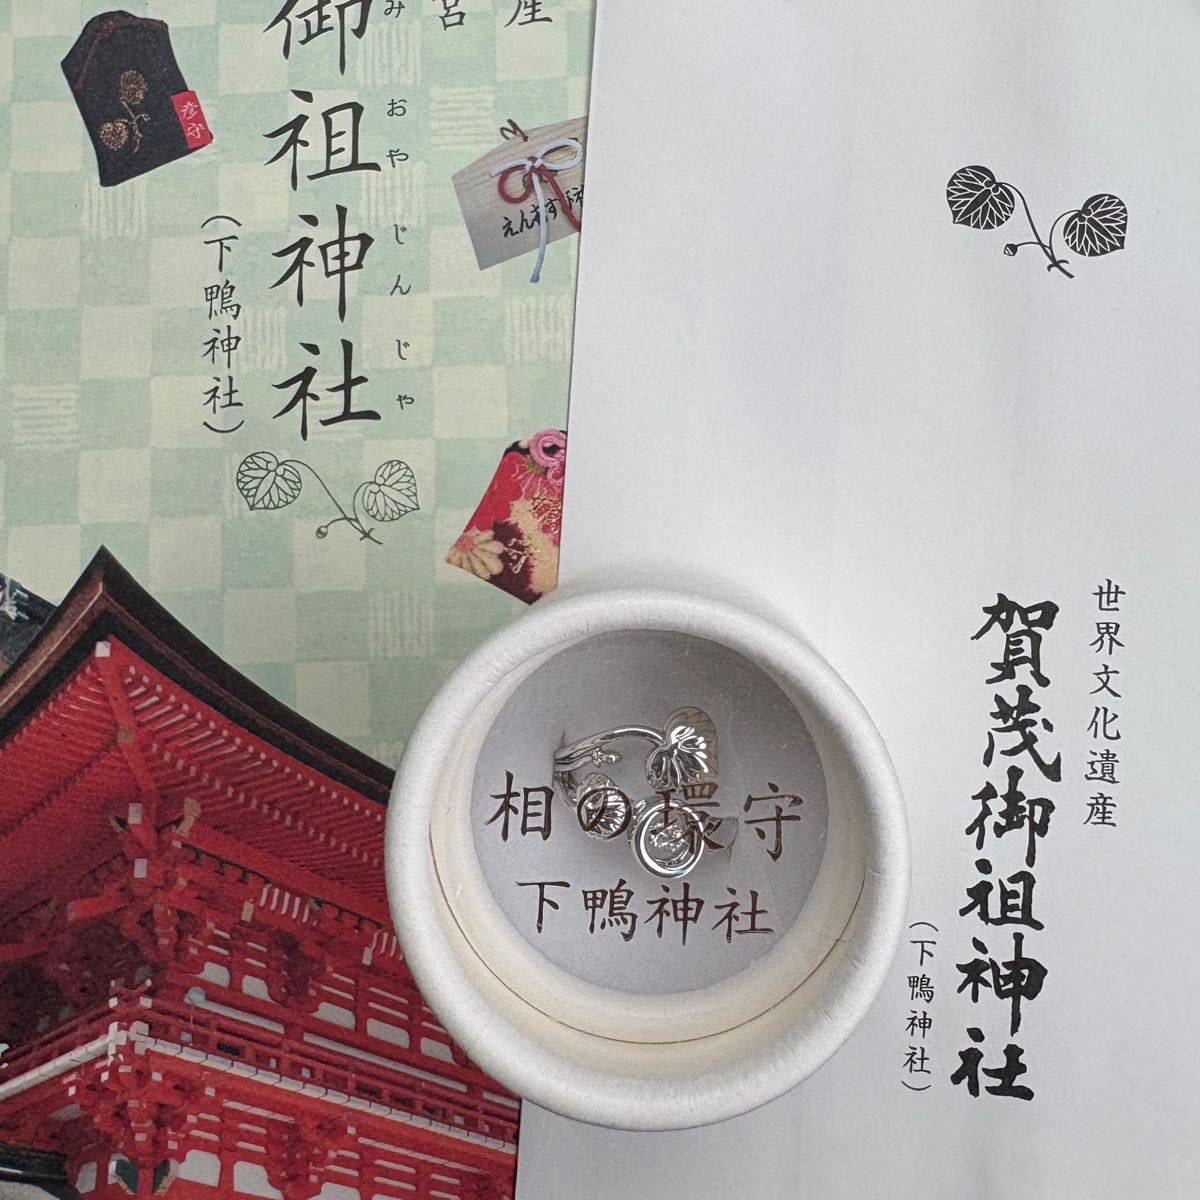 産
宮
御祖神社
みおやじんじゃ
(下鴨神社)
彦守
えんむすび
世界文化遺産
賀茂御祖神社
(下鴨神社)
相の環守
下鴨神社